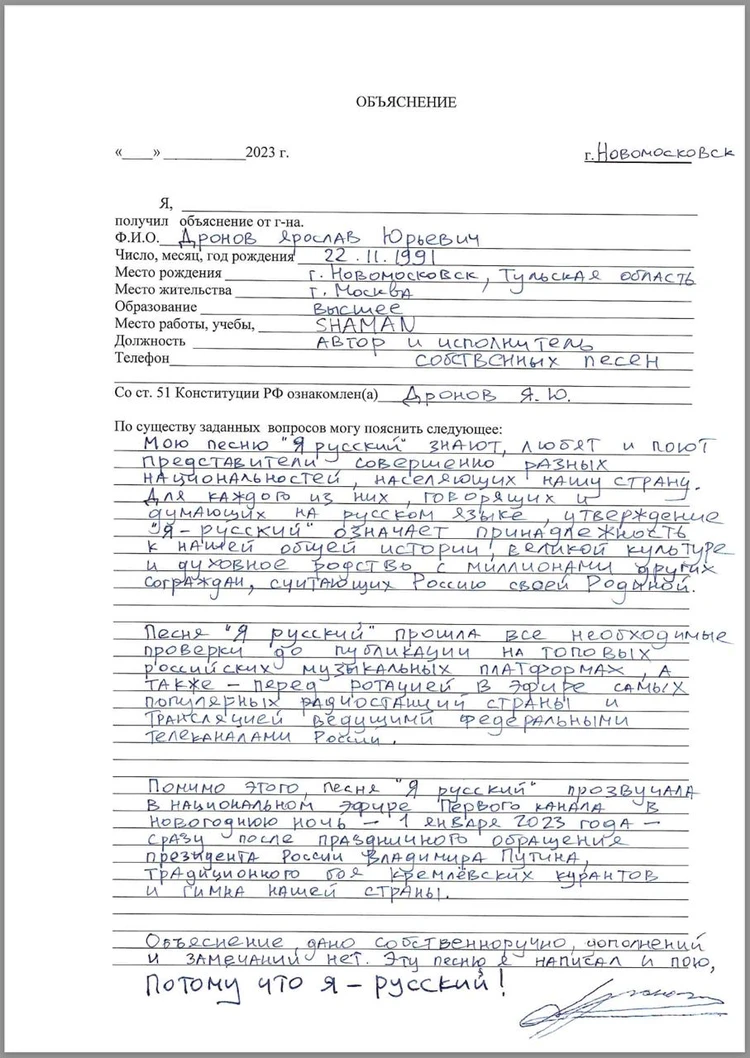 ОБЪЯСНЕНИЕ
«____» ___________2023 г. г.Новомосковск
Я,
получил объяснение от г-на.
Ф.И.О. Дронов Ярослав Юрьевич
Число, месяц, год рождения 22.11.1991
Место рождения г. Новомосковск, Тульская область
Место жительства г. Москва
Образование высшее
Место работы, учебы, SHAMAN
Должность автор и исполнитель
Телефон собственных песен
Со ст. 51 Конституции РФ ознакомлен(а) Дронов Я.Ю.
По существу заданных вопросов могу пояснить следующее:
Мою песню "Я русский" знают, любят и поют
представители совершенно разных
национальностей, населяющих нашу страну.
Для каждого из них, говорящих и
думающих на русском языке, утверждение
"Я - русский" означает принадлежность
к нашей общей истории, великой культуре
и духовное родство с миллионами других
сограждан, считающих Россию своей Родиной.
Песня "Я русский" прошла все необходимые
проверки до публикации на топовых
российских музыкальных платформах, а
также - перед ротацией в эфире самых
популярных радиостанций страны и
трансляцией ведущими федеральными
телеканалами России.
Помимо этого, песня "Я русский" прозвучала
в национальном эфире Первого канала в
новогоднюю ночь - 1 января 2023 года -
сразу после праздничного обращения
президента России Владимира Путина,
традиционного боя кремлёвских курантов
и гимна нашей страны.
Объяснение дано собственноручно, дополнений
и замечаний нет. Эту песню я написал и пою,
потому что я - русский!